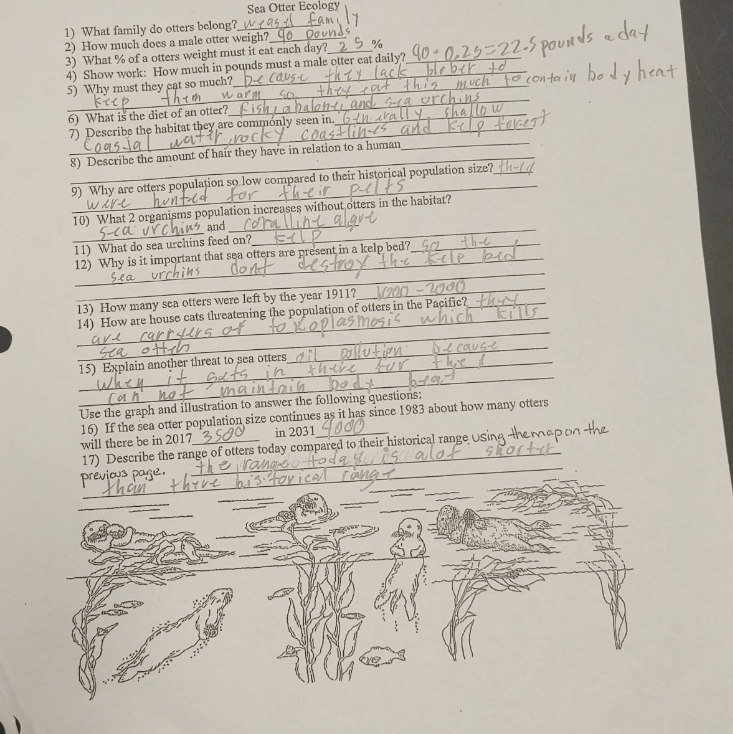 Sea Otter Ecology
1) What family do otters belong? weasel family
2) How much does a male otter weigh? 90 pounds
3) What % of a otters weight must it eat each day? 25 %
4) Show work: How much in pounds must a male otter eat daily? 90 · 0.25=22.5 pounds a day
5) Why must they eat so much? because they lack bleber to
keep them warm so they eat this much to contain body heat
6) What is the diet of an otter? Fish, abalone, and sea orchins
7) Describe the habitat they are commonly seen in. Generally shallow
Coastal watter, rocky coastlines and kelp forest
8) Describe the amount of hair they have in relation to a human
9) Why are otters population so low compared to their historical population size?
were hunted for their pelts
10) What 2 organisms population increases without otters in the habitat?
sea urchins and coralline algue
11) What do sea urchins feed on? kelp
12) Why is it important that sea otters are present in a kelp bed? so the
sea urchins dont destroy the kelp bed
13) How many sea otters were left by the year 1911? 1000 - 2000
14) How are house cats threatening the population of otters in the Pacific? they
are carryers of toxoplasmosis which kills
sea otters
15) Explain another threat to sea otters oil pollution because
when it gets in there fur the
can not maintain body heat
Use the graph and illustration to answer the following questions:
16) If the sea otter population size continues as it has since 1983 about how many otters
will there be in 2017 3500 in 2031 4000
17) Describe the range of otters today compared to their historical range using the map on the
previous page. the range today is alot shorter
than there historical range